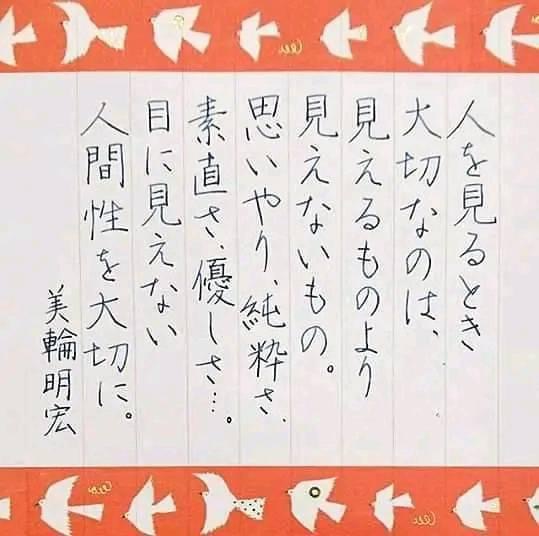 人を見るとき
大切なのは、
見えるものより
見えないもの。
思いやり、純粋さ、
素直さ、優しさ…。
目に見えない
人間性を大切に。
美輪明宏